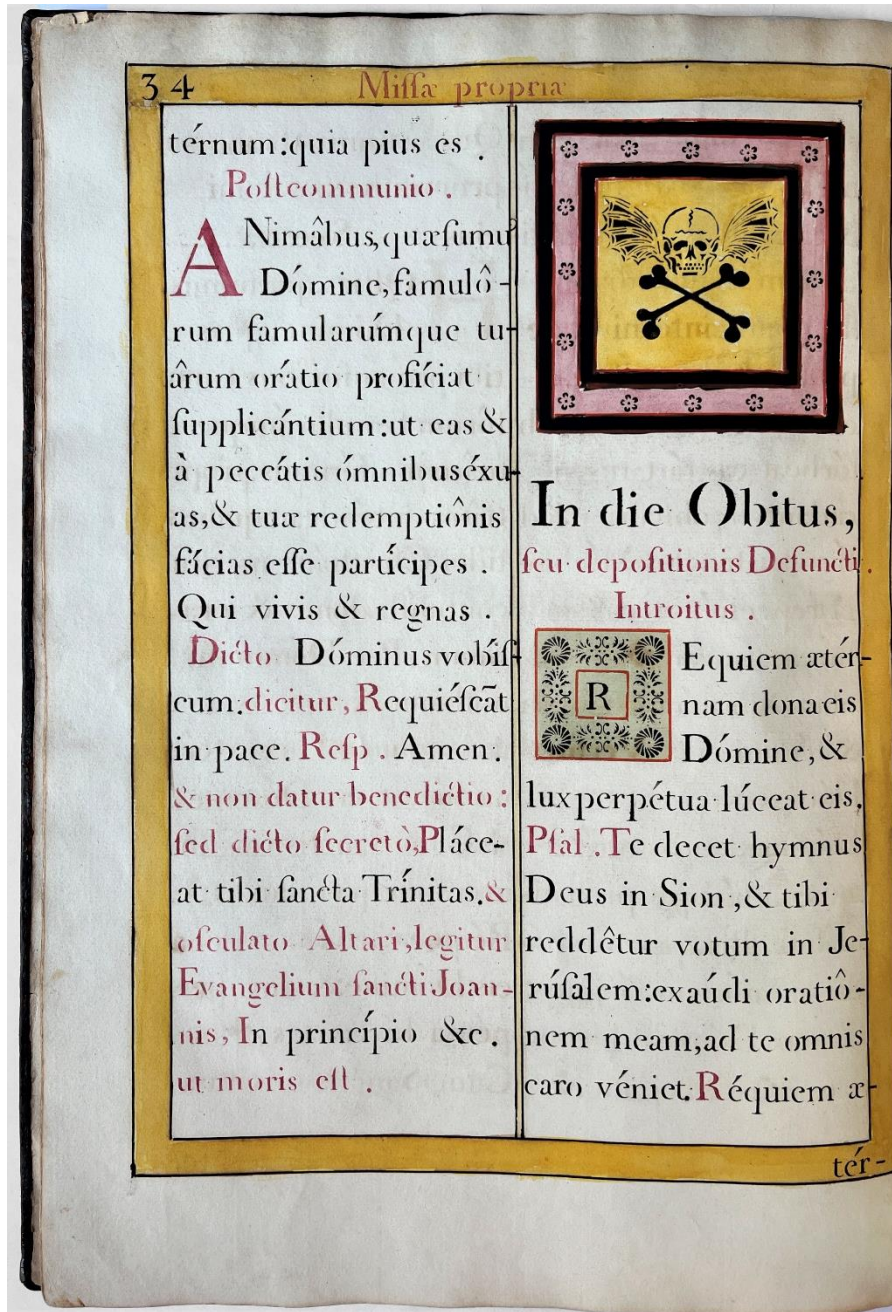 34
Miſſæ propriæ
térnum:quia pius es .
Poſtcommunio .
ANimâbus,quæſumuˀ
Dómine,famulô-
rum famularúmque tu-
ârum orátio profíciat
ſupplicántium:ut eas &
à peccátis ómnibuséxu-
as,& tuæ redemptiônis
fácias eſſe partícipes .
Qui vivis & regnas .
Dicto Dóminus vobíſ-
cum:dicitur, Requiéſcāt
in pace. Reſp . Amen .
& non datur benedictio :
ſed dicto ſecretò,Pláce-
at tibi ſancta Trínitas.&
oſculato Altari,legitur
Evangelium ſancti Joan-
nis, In princípio &c.
ut moris eſt .
In die Obitus,
ſeu depoſitionis Defuncti.
Introitus .
REquiem ætér-
nam dona eis
Dómine,&
lux perpétua lúceat eis.
Pſal .Te decet hymnus
Deus in Sion ,& tibi
reddêtur votum in Je-
rúſalem:exaúdi oratiô-
nem meam,ad te omnis
caro véniet. Réquiem æ-
tér-